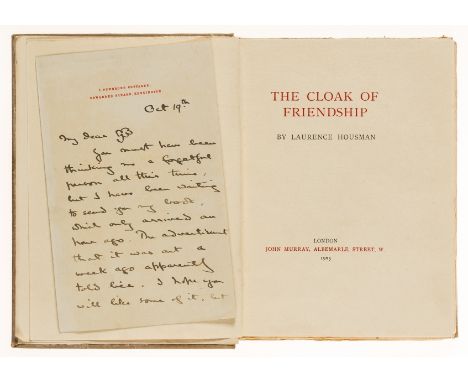 PEMBROKE COTTAGES,
EDWARDES SQUARE, KENSINGTON.
Oct 19th
My dear
You must have been
thinking me a forgetful
person all this time,
but I have been waiting
to send you my book,
which only arrived an
hour ago. The advertisment
that it was out a
week ago apparently
told lies. I hope you
will like some of it, but
THE CLOAK OF
FRIENDSHIP
BY LAURENCE HOUSMAN
LONDON
JOHN MURRAY, ALBEMARLE STREET, W.
1905